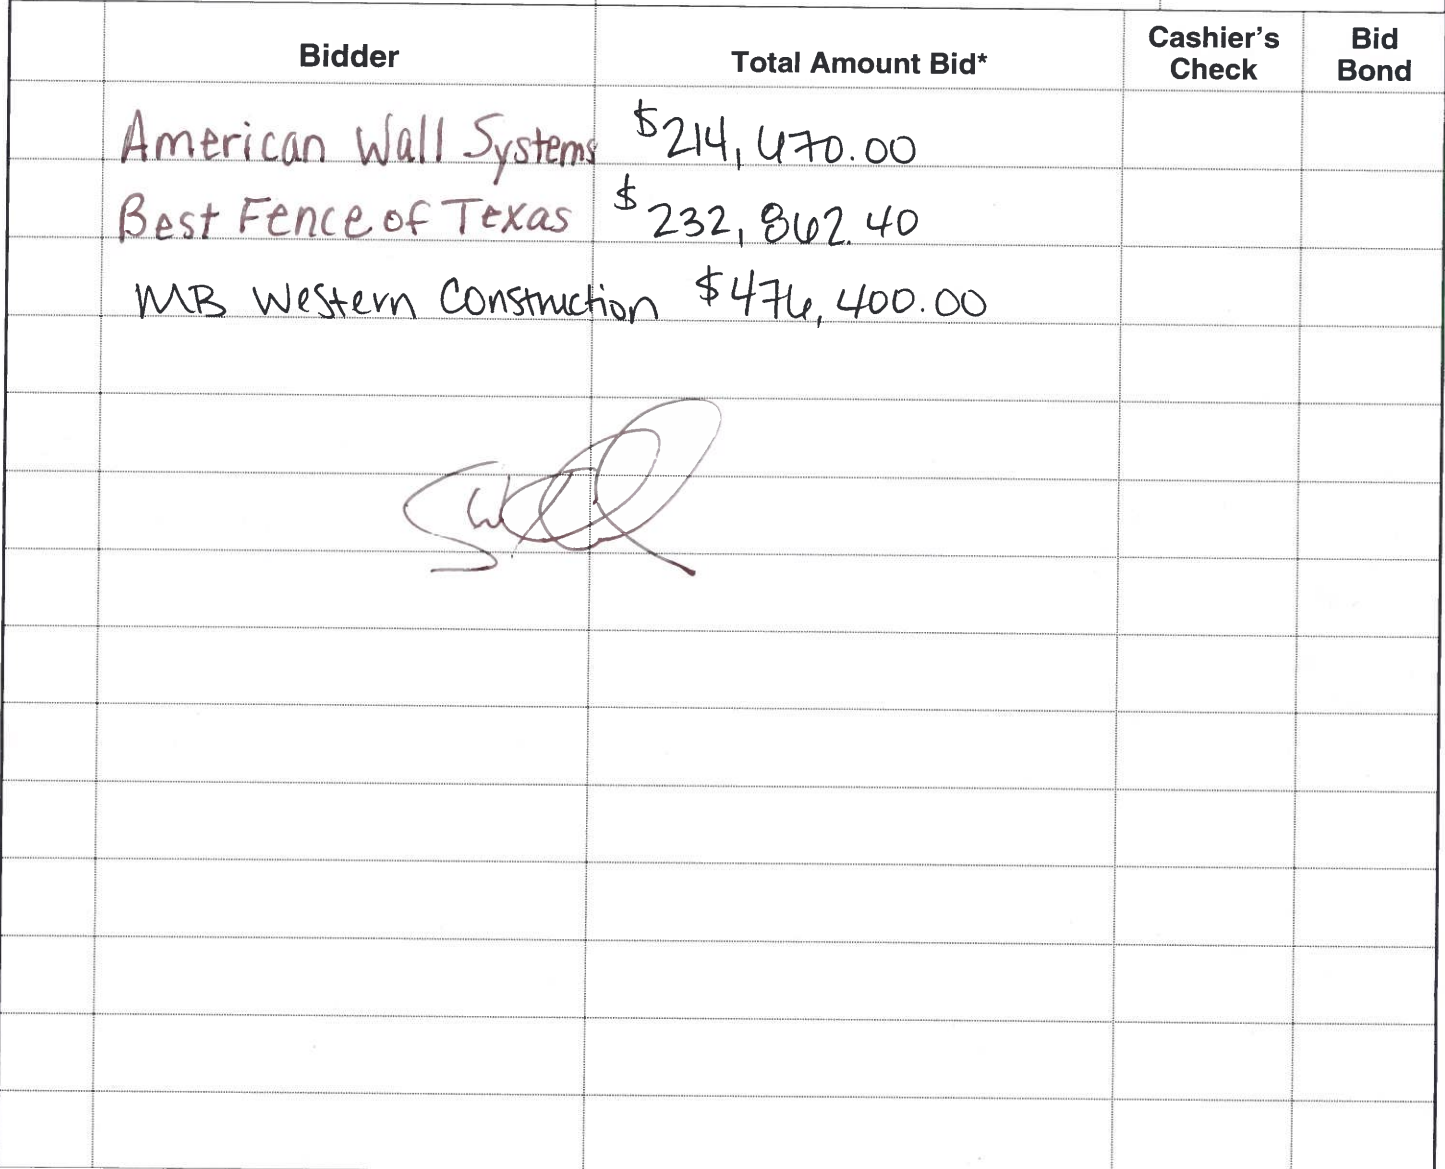 Bidder
Total Amount Bid*
Cashier's
Check
Bid
Bond
American Wall Systems $214,470.00
Best Fence of Texas $232,862.40
MB Western Construction $476,400.00